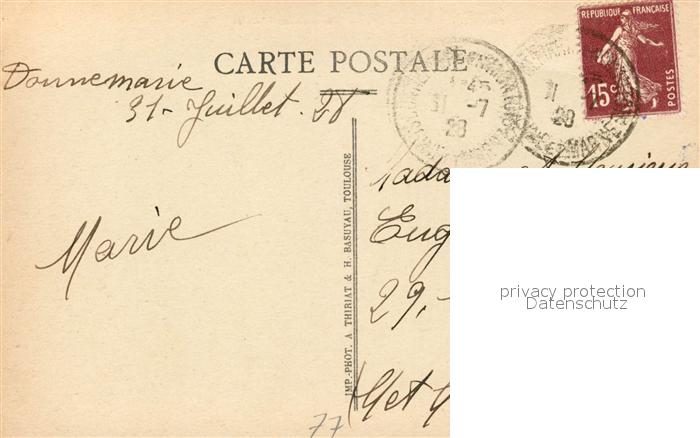 CARTE POSTALE
Donnemarie
31 - Juillet. 28
Marie
IMP.-PHOT. A THIRIAT & H. BASUYAU, TOULOUSE
RÉPUBLIQUE FRANÇAISE
15c
POSTES
31 -7
28
31
28
ET MARNE
Mada
Eug
29,
privacy protection
Datenschutz
77